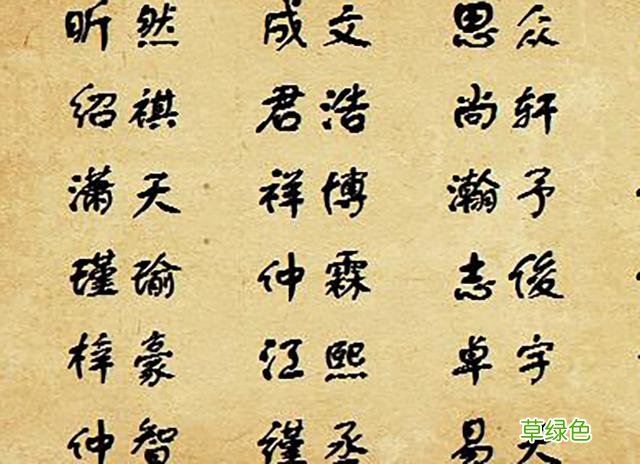 昕然 成文 思众
绍祺 君浩 尚轩
潇天 祥博 瀚予
瑾瑜 仲霖 志俊
梓豪 江熙 卓宇
仲智 瑾丞 易天
草绿色